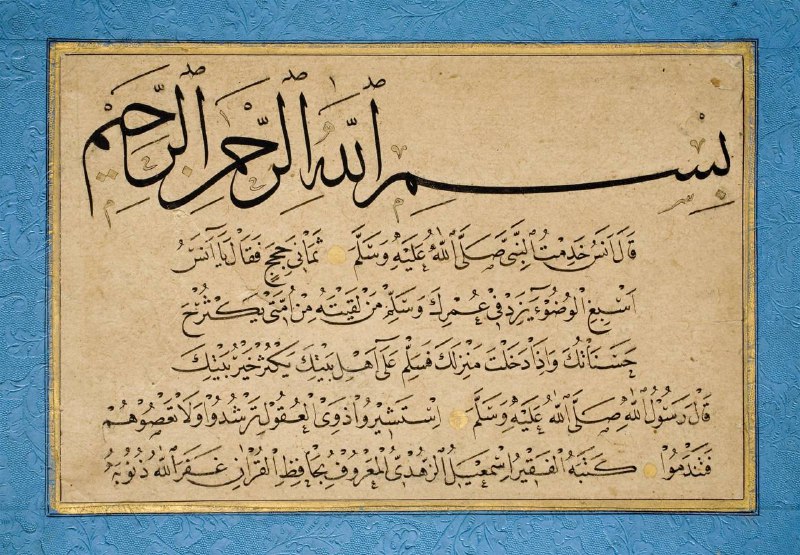 بِسْمِ اللّٰهِ الرَّحْمٰنِ الرَّحِيمِ
قَالَ اَنَسُ خَدِمْتُ النَّبِىَّ صَلَّى اللّٰهُ عَلَيْهِ وَسَلَّمَ ثَمَانِىَ حِجَجٍ فَقَالَ يَا اَنَسُ
اَسْبِغِ الْوُضُوٓءَ يَزِدْ فِى عُمْرِكَ وَسَلِّمْ مَنْ لَقِيتَهُ مِنْ اُمَّتِى يَكْثُرْ
حَسَنَاتُكَ وَاِذَا دَخَلْتَ مَنْزِلَكَ فَسَلِّمْ عَلَى اَهْلِ بَيْتِكَ يَكْثُرْ خَيْرُ بَيْتِكَ
قَالَ رَسُولُ اللّٰهِ صَلَّى اللّٰهُ عَلَيْهِ وَسَلَّمَ اِسْتَشِيرُوا ذَوِى الْعُقُولِ تَرْشُدُوا وَلَا تَعْصُوهُمْ
فَتَنْدَمُوا كَتَبَهُ الْفَقِيرُ اِسْمٰعِيلُ الزُّهْدِىُّ الْمَعْرُوفُ بِحَافِظِ الْقُرْاٰنِ غَفَرَ اللّٰهُ ذُنُوبَهُ